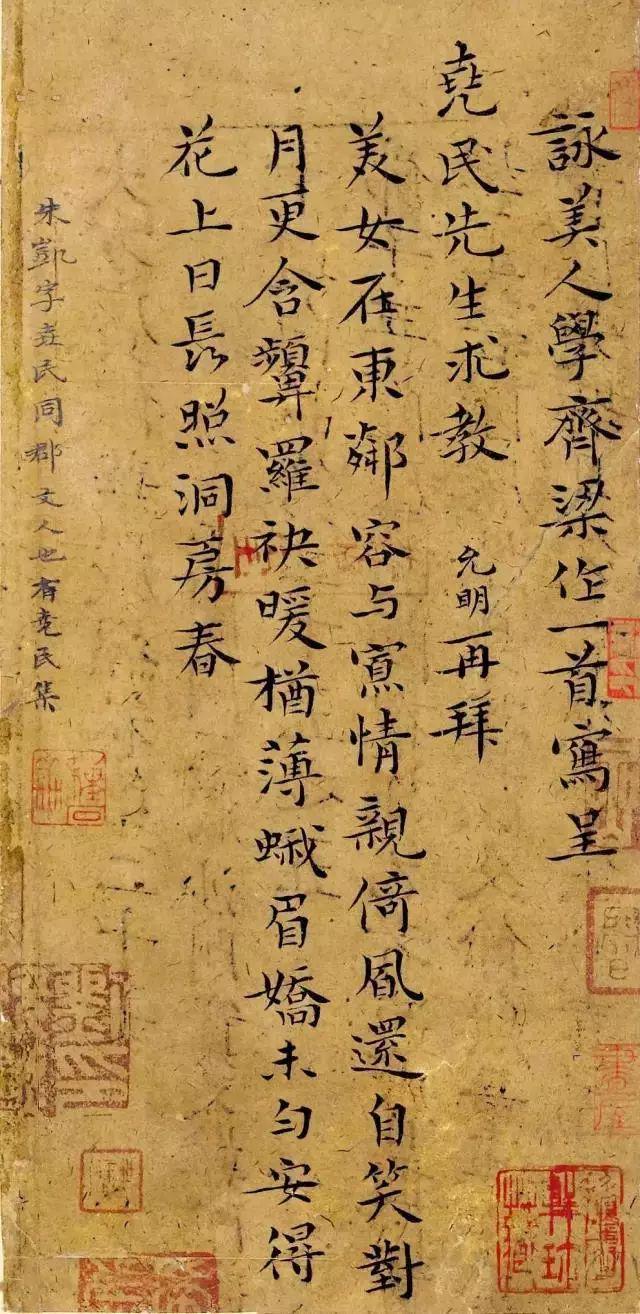 詠美人學齊梁作一首寫呈
堯民先生求教 允明再拜
美女在東鄰容与寡情親倚風還自笑對
月更含顰羅袂暖猶薄蛾眉嬌未勻安得
花上日長照洞房春
朱凱字堯民同郡文人也有堯民集